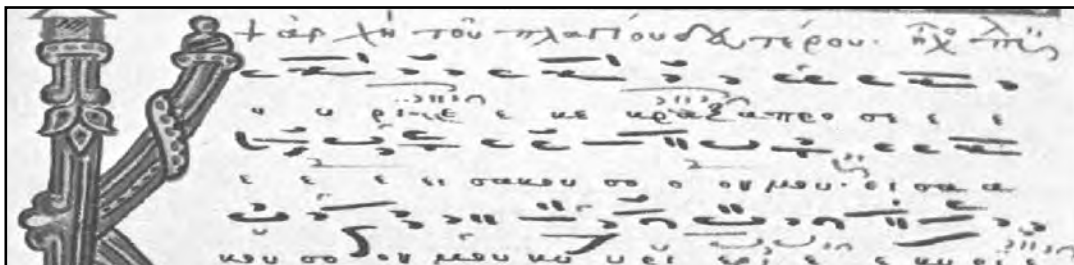 + ἀρχὴ τοῦ πλαγίου δευτέρου· ἦχ
Κ υ υ ρι ε ε κε κραξα προ σε ε ε
ε ε ε ει σακου σο ο ου μου· ει σα α
κου σο ου μου κυ υ ρι ε ε κυ ρι ε